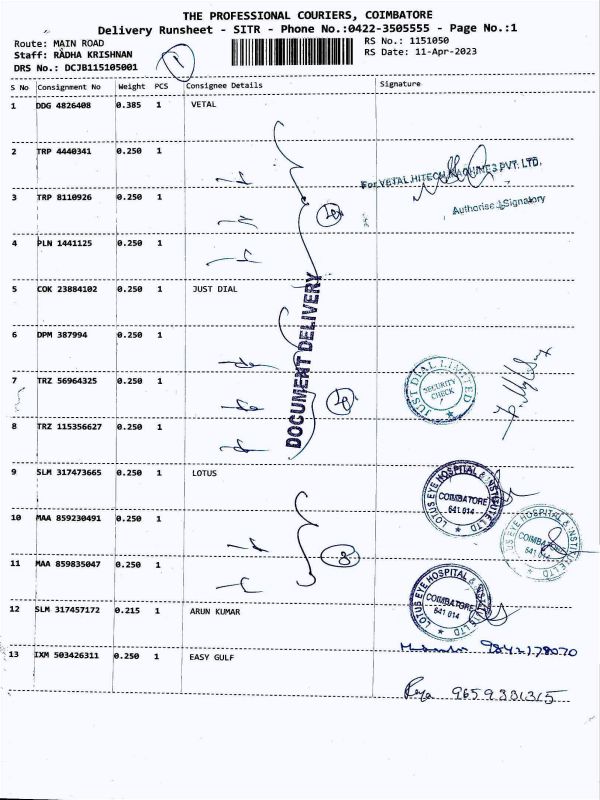 THE PROFESSIONAL COURIERS, COIMBATORE
Delivery Runsheet - SITR - Phone No.:0422-3505555 - Page No.:1
Route: MAIN ROAD
RS No.: 1151050
Staff: RADHA KRISHNAN
RS Date: 11-Apr-2023
DRS No.: DCJB115105001
1
S No Consignment No Weight PCS Consignee Details Signature
1 DDG 4826408 0.385 1 VETAL
2 TRP 4440341 0.250 1
For VETAL HITECH MACHINES PVT. LTD.
3 TRP 8110926 0.250 1
Authorised Signatory
4 PLN 1441125 0.250 1
5 COK 23884102 0.250 1 JUST DIAL
DOCUMENT DELIVERY
6 DPM 387994 0.250 1
7 TRZ 56964325 0.250 1
JUST DIAL LIMITED
SECURITY
CHECK
8 TRZ 115356627 0.250 1
9 SLM 317473665 0.250 1 LOTUS
LOTUS EYE HOSPITAL & INSTITUTE LTD
COIMBATORE
641 014
10 MAA 859230491 0.250 1
LOTUS EYE HOSPITAL & INSTITUTE LTD
COIMBATORE
641 014
11 MAA 859835047 0.250 1
3
LOTUS EYE HOSPITAL & INSTITUTE LTD
COIMBATORE
641 014
12 SLM 317457172 0.215 1 ARUN KUMAR
9842178070
13 IXM 503426311 0.250 1 EASY GULF
Priya 9659331315